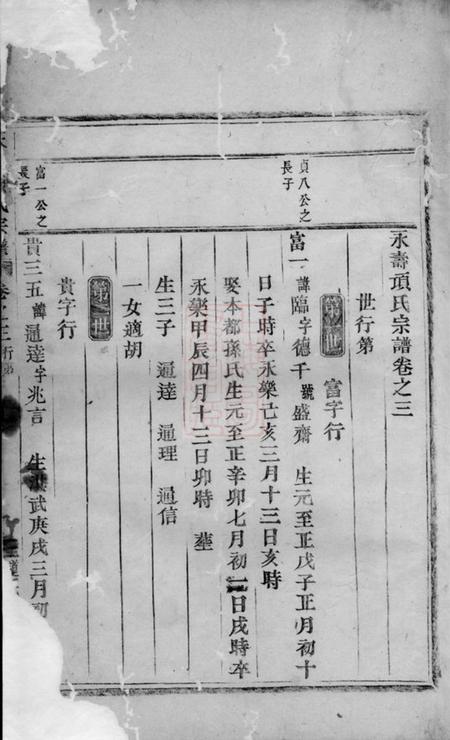 永壽項氏宗譜卷之三
世行第
富字行
貞八公之
長子
富一 諱臨字德千 號盛齋 生元至正戊子正月初十
日子時卒永樂己亥三月十三日亥時
娶本都孫氏生元至正辛卯七月初二日戌時卒
永樂甲辰四月十三日卯時 塟
生三子 逼達 逼理 逼信
一女適胡
世
貴字行
富一公之
長子
貴三五 諱逼達字兆言 生洪武庚戌三月初